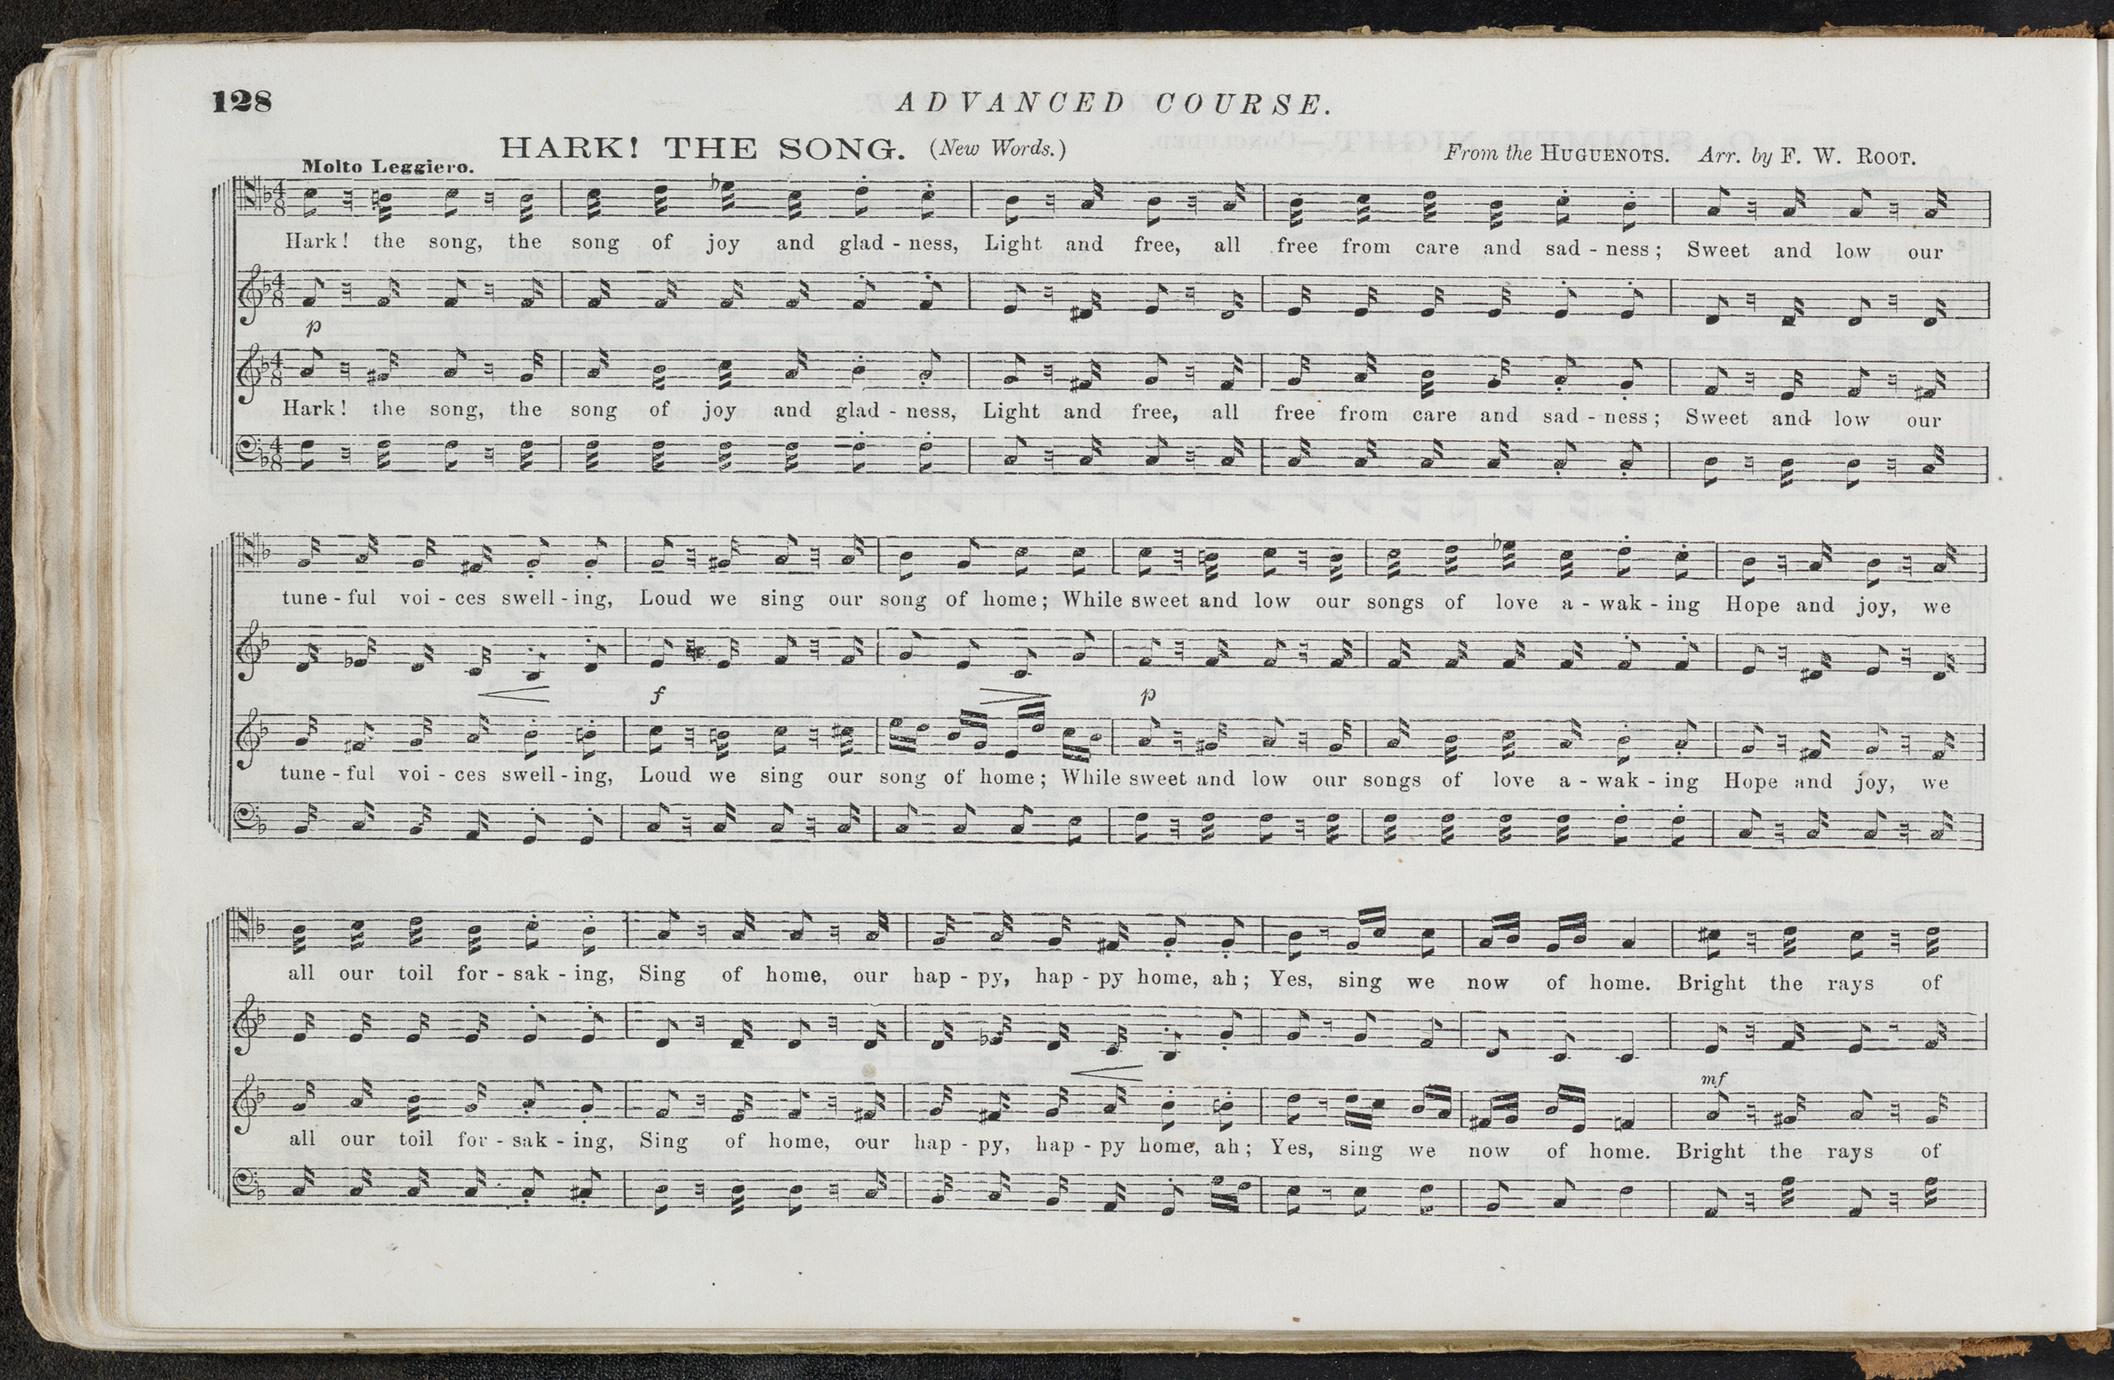 128
ADVANCED COURSE.
HARK! THE SONG. (New Words.)
From the HUGUENOTS. Arr. by F. W. ROOT.
Molto Leggiero.
Hark! the song, the song of joy and glad - ness, Light and free, all free from care and sad - ness; Sweet and low our
p
Hark! the song, the song of joy and glad - ness, Light and free, all free from care and sad - ness; Sweet and low our
tune - ful voi - ces swell - ing, Loud we sing our song of home; While sweet and low our songs of love a - wak - ing Hope and joy, we
f p
tune - ful voi - ces swell - ing, Loud we sing our song of home; While sweet and low our songs of love a - wak - ing Hope and joy, we
all our toil for - sak - ing, Sing of home, our hap - py, hap - py home, ah; Yes, sing we now of home. Bright the rays of
mf
all our toil for - sak - ing, Sing of home, our hap - py, hap - py home, ah; Yes, sing we now of home. Bright the rays of